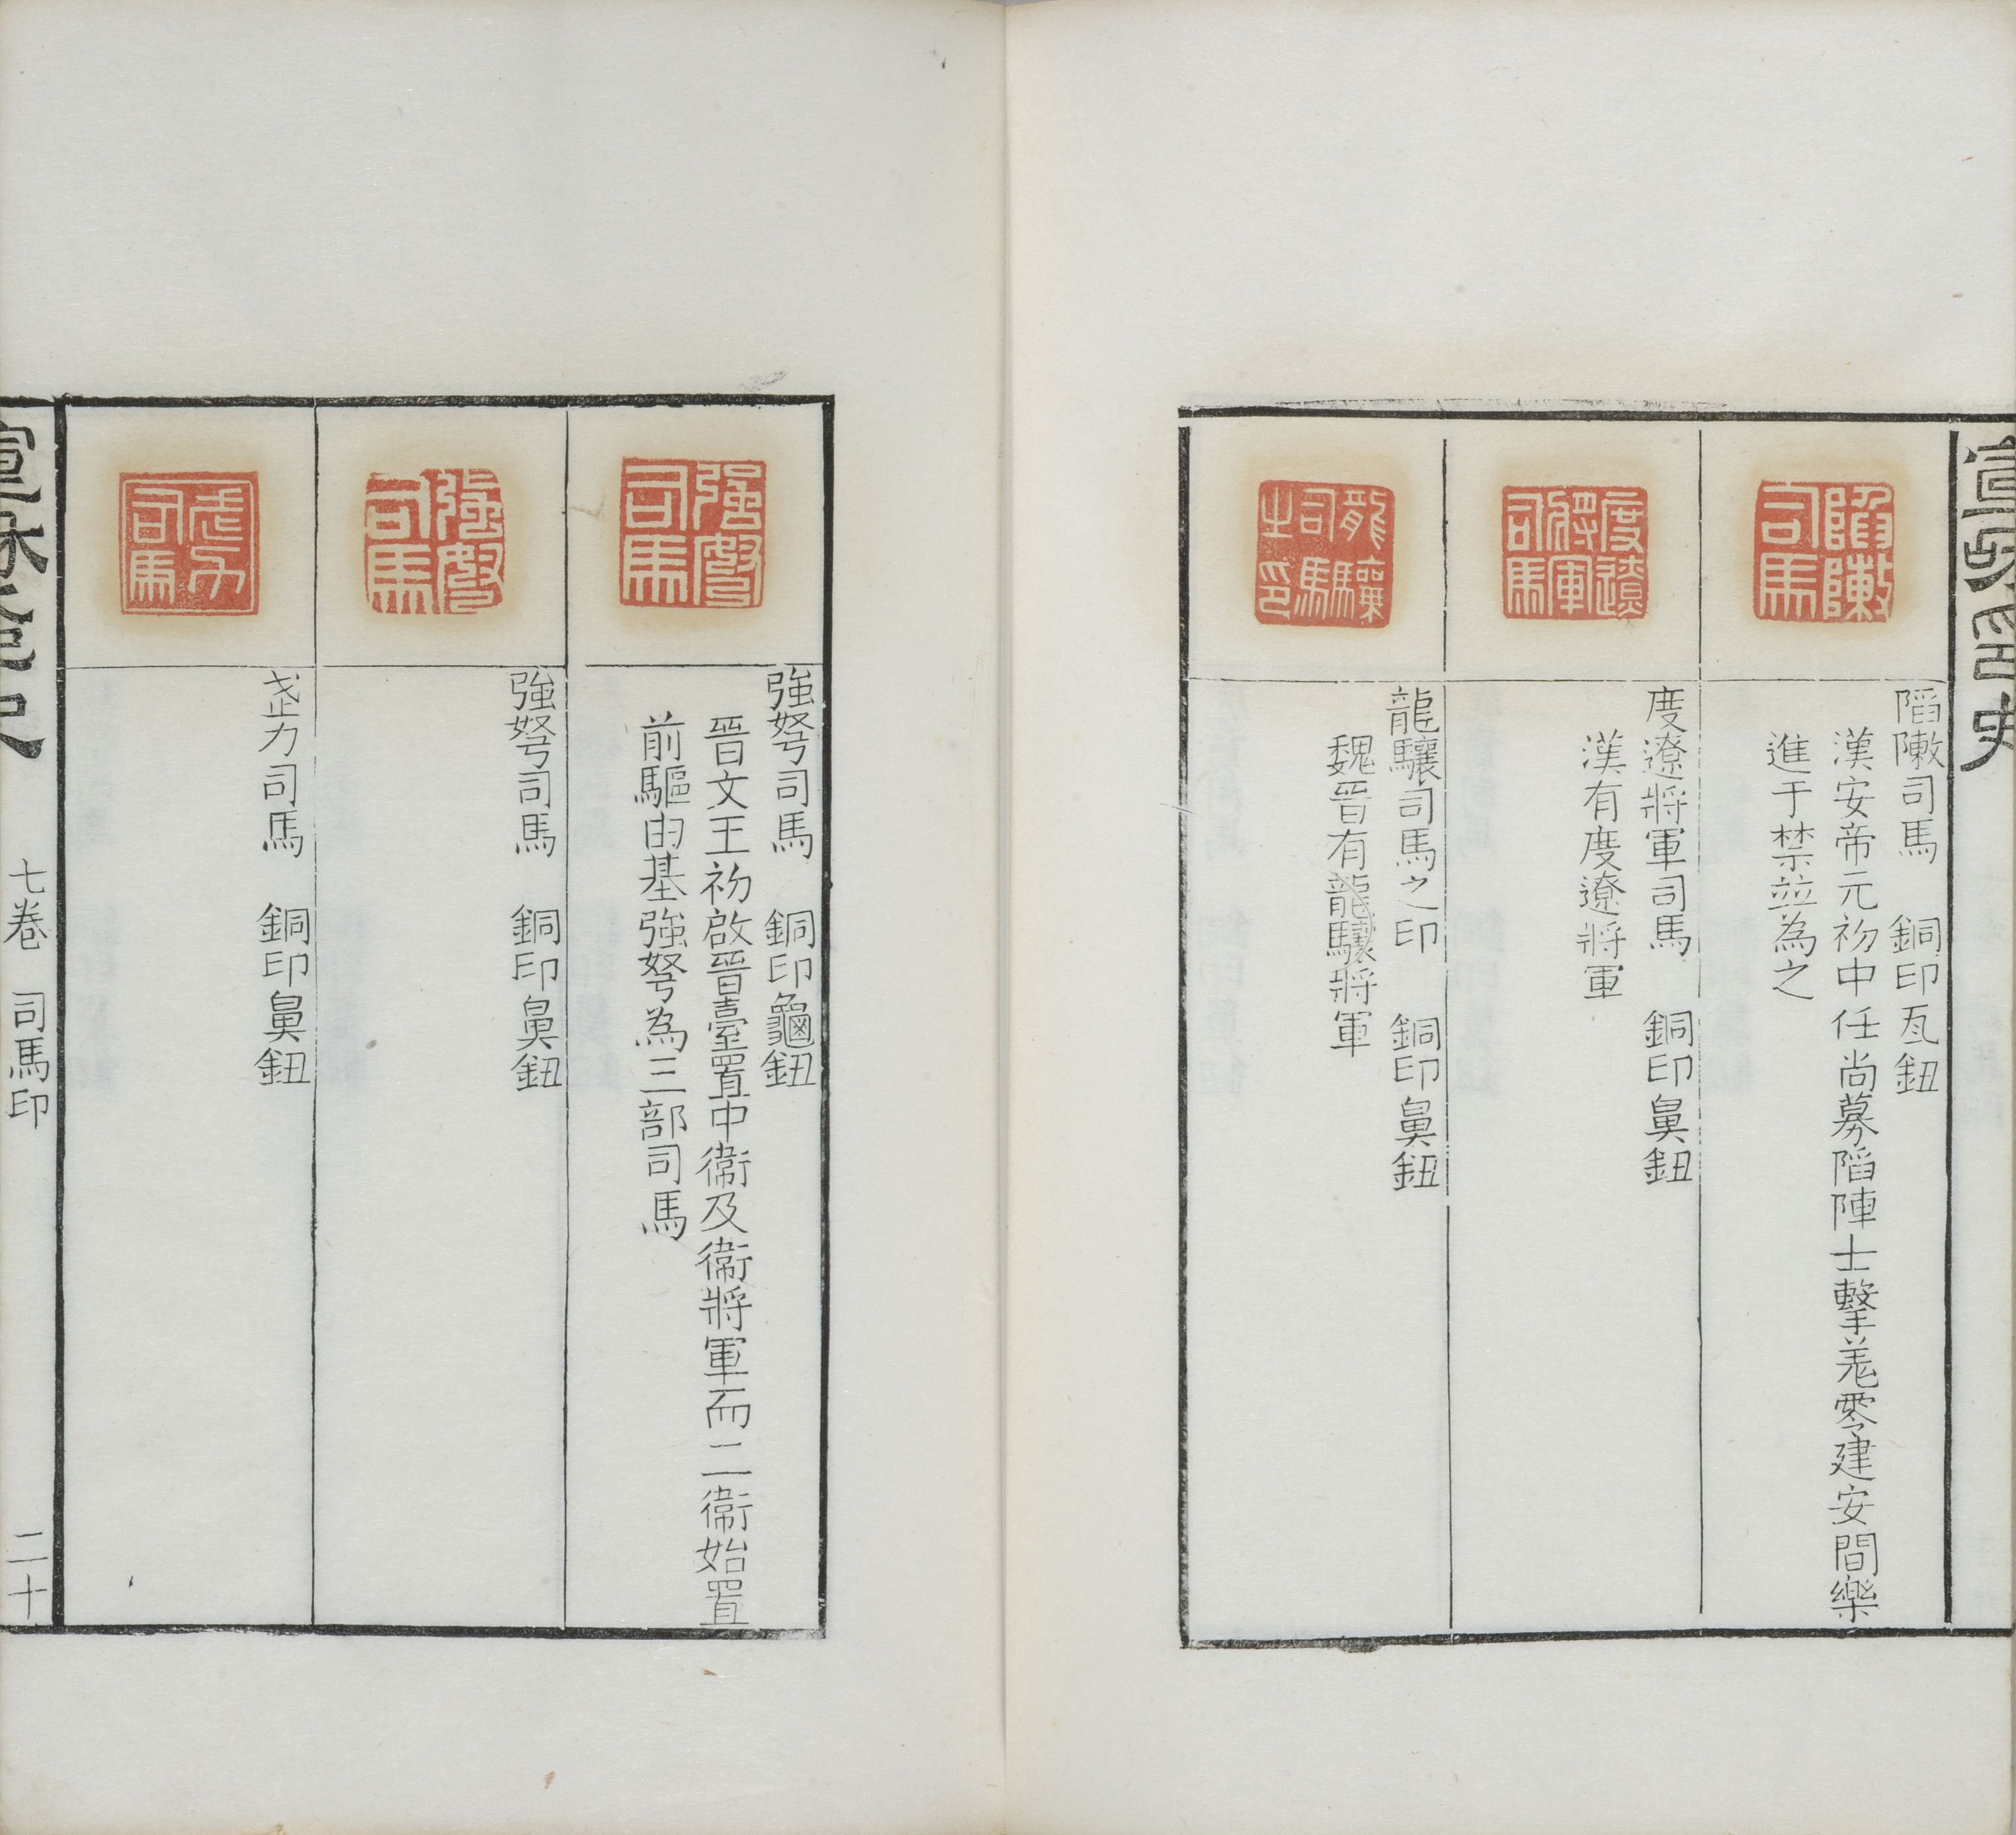 宣和印史
陷敶司馬
陷敶司馬　銅印瓦鈕
漢安帝元初中任尚募陷陣士擊羌零建安間樂
進于禁並為之
度遼將軍司馬
度遼將軍司馬　銅印鼻鈕
漢有度遼將軍
龍驤司馬之印
龍驤司馬之印　銅印鼻鈕
魏晉有龍驤將軍
強弩司馬
強弩司馬　銅印龜鈕
晉文王初啟晉臺置中衞及衞將軍而二衞始置
前驅由基強弩為三部司馬
強弩司馬
強弩司馬　銅印鼻鈕
武力司馬
武力司馬　銅印鼻鈕
宣和印史　七卷　司馬印　二十